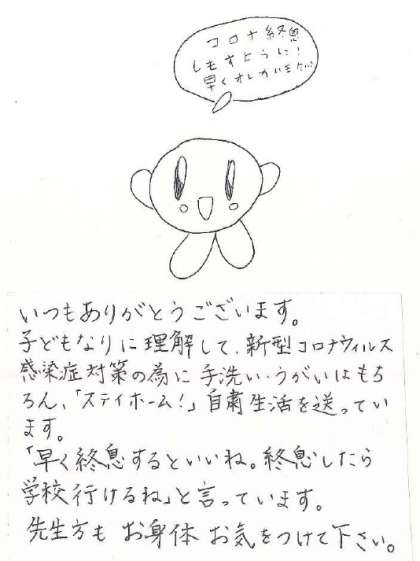 コロナ終息
しますように!
早くオしかいきたい
いつもありがとうございます。
子どもなりに理解して、新型コロナウィルス
感染症対策の為に手洗い・うがいはもち
ろん、「ステイホーム!」自粛生活を送ってい
ます。
「早く終息するといいね。終息したら
学校行けるね」と言っています。
先生方も お身体 お気をつけて下さい。